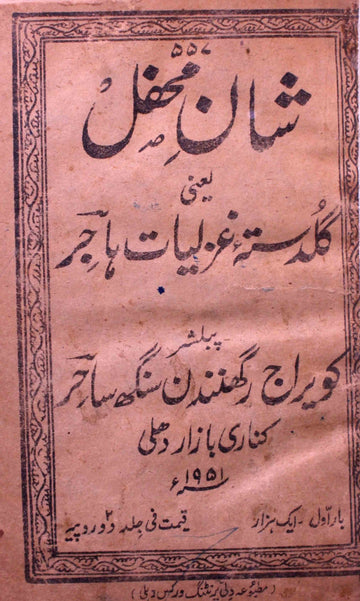 ۵۵۷
شانِ محفل
یعنی
گلدستۂ غزلیات ہاجر
پبلشر
کویراج رگھنندن سنگھ ساحر
کناری بازار دھلی
۱۹۵۱ء
بار اوّل - ایک ہزار قیمت فی جلد ۲ دو روپیہ
(مطبوعہ دلی پرنٹنگ ورکس دہلی)